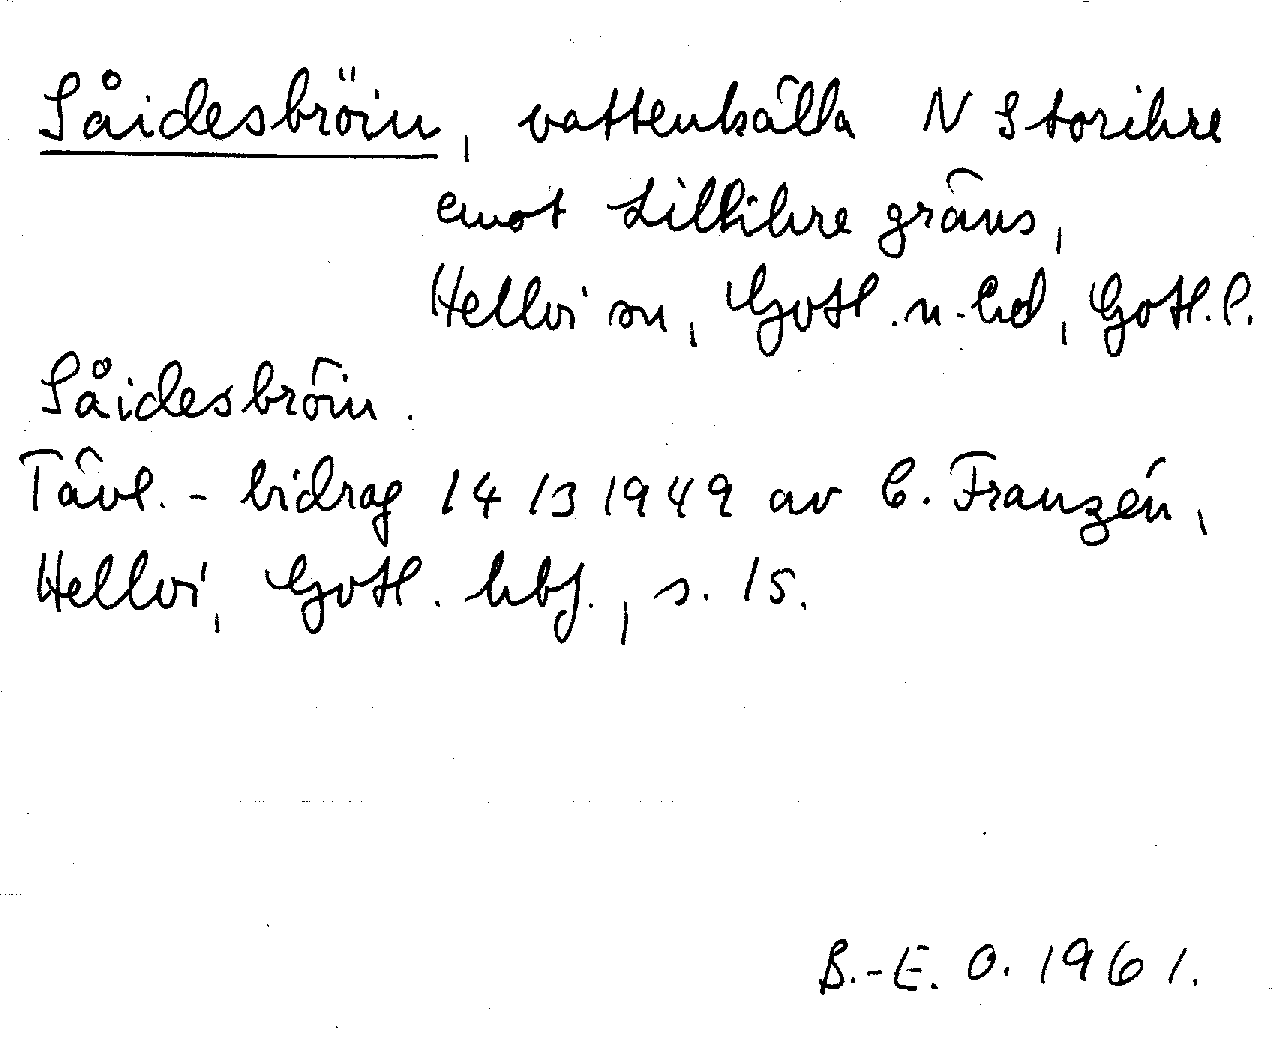 Såidesbröin, vattenkälla N Storihre
emot Lillihre gräns,
Hellvi sn, Gotl. n. hd, Gotl. l.
Såidesbröin.
Tävl. - bidrag 14/3 1949 av C. Franzén,
Hellvi, Gotl. hbf., s. 15.
B.-E. O. 1961.